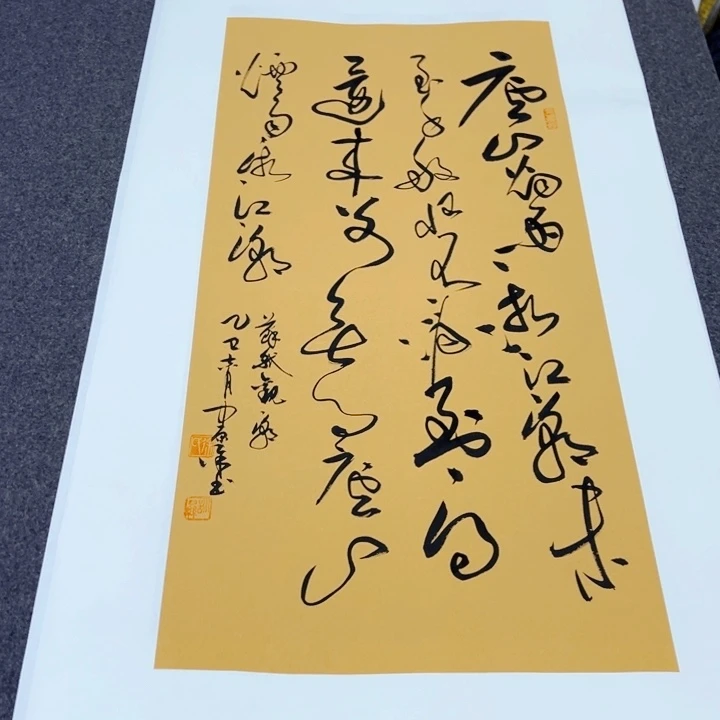 廬山烟雨浙江潮未
至千般恨不消到得
還来别無事廬山
煙雨浙江潮
蘇軾觀潮
乙巳六月書